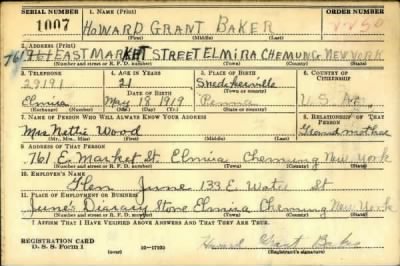 SERIAL NUMBER 1. NAME (Print) ORDER NUMBER
1007 HOWARD GRANT BAKER
(First) (Middle) (Last)
2. ADDRESS (Print)
761 EAST MARKET STREET ELMIRA CHEMUNG NEW YORK
(Number and street or R. F. D. number) (Town) (County) (State)
3. TELEPHONE 4. AGE IN YEARS 5. PLACE OF BIRTH 6. COUNTRY OF CITIZENSHIP
29191 21
DATE OF BIRTH (Town or county)
Elmira May 18 1919 Penna U. S.
(Exchange) (Number) (Mo.) (Day) (Yr.) (State or country)
7. NAME OF PERSON WHO WILL ALWAYS KNOW YOUR ADDRESS 8. RELATIONSHIP OF THAT PERSON
Mrs Nettie Wood Grandmother
(Mr., Mrs., Miss) (First) (Middle) (Last)
9. ADDRESS OF THAT PERSON
761 E. Market St. Elmira Chemung New York
(Number and street or R. F. D. number) (Town) (County) (State)
10. EMPLOYER'S NAME
Glen June 133 E. Water St
11. PLACE OF EMPLOYMENT OR BUSINESS
June's Store Elmira Chemung New York
(Number and street or R. F. D. number) (Town) (County) (State)
I AFFIRM THAT I HAVE VERIFIED ABOVE ANSWERS AND THAT THEY ARE TRUE.
REGISTRATION CARD
D. S. S. Form 1 (over) 16—17105 Howard Grant Baker
(Registrant's signature)